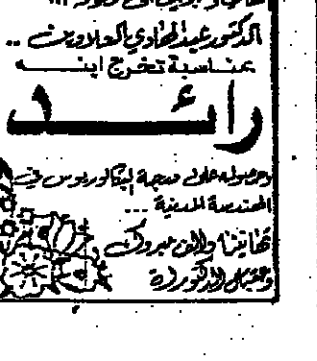 الدكتور عبدالهادي العلاوين ..
بمناسبة تخرج ابنه
رائد
وحصوله على درجة البكالوريوس في
الهندسة المدنية ...
تهانينا والف مبروك
وعقبال الدكتوراة